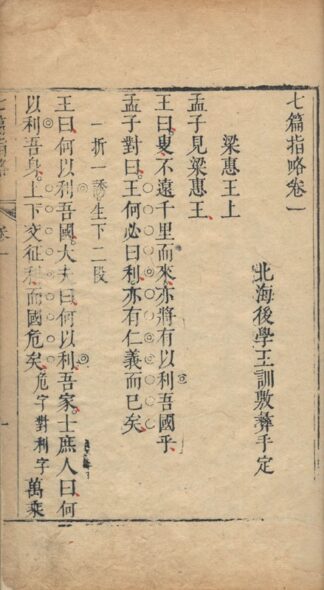 七篇指略卷一
北海後學王訓敷彝手定
梁惠王上
孟子見梁惠王
王曰叟不遠千里而來亦將有以利吾國乎
孟子對曰王何必曰利亦有仁義而已矣
一折一誘生下二段
王曰何以利吾國大夫曰何以利吾家士庶人曰何
以利吾身上下交征利而國危矣危字對利字萬乘
七篇指略 卷一 一